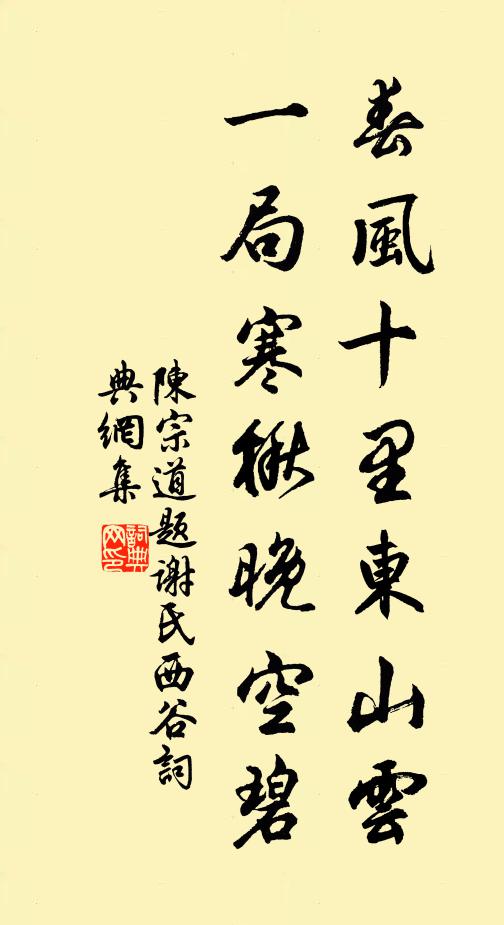 春風十里東山雲
一局寒楸晚空碧
陳宗道題謝氏西谷詞
典網集
詞典網印